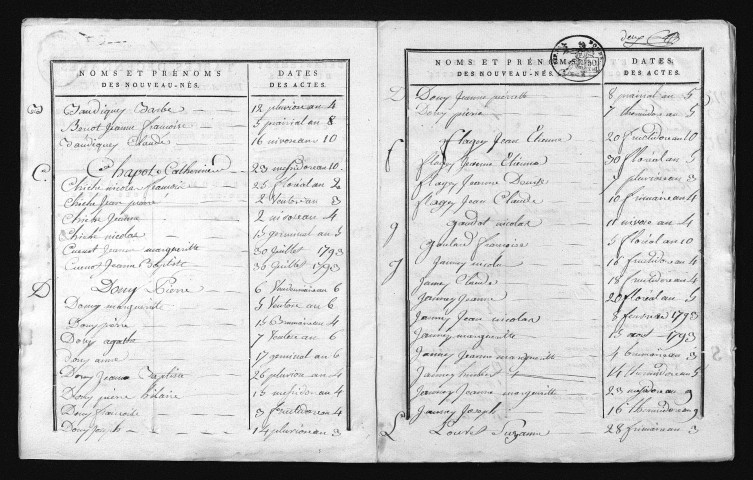 NOMS ET PRÉNOMS DES NOUVEAU-NÉS. DATES DES ACTES.
B Baudiquey Barbe 12 pluviose an 4
Benoit Jeanne francoise 5 prairial an 8
Baudiquey Claude 16 nivose an 10
C. Chapot Catherine 23 messidor an 10
Chiche nicolas francois 25 floréal an 2
Chiche Jean pierre 2 Ventose an 3
Chiche Jeanne 2 nivose an 4
Chiche nicolas 15 germinal an 5
Cuenot Jeanne marguerite 30 Juillet 1793
Cuenot Jeanne Baptiste 30 Juillet 1793
D Dony Pierre 6 Vendemiaire an 6
Dony marguerite 5 Ventose an 6
Dony pierre 15 Brumaire an 4
Dony agathe 7 Ventose an 6
Dony anne 17 germinal an 6
Dony Jean Baptiste 26 pluviose an 4
Dony pierre hilaire 15 messidor an 4
Dony francoise 3 fructidor an 4
Dony Joseph 14 pluviose an 3
deux
NOMS ET PRÉNOMS DES NOUVEAU-NÉS. DATES DES ACTES.
D Dony Jeanne pierrette 8 prairial an 5
Dony pierre 7 thermidor an 5
f Flagey Jean Etienne 20 fructidor an 10
flagey Jeanne Etienne 30 floréal an 5
flagey Jeanne Denise 7 pluviose an 3
flagey Jean Claude 10 frimaire an 4
g gaudot nicolas 11 nivose an 4
Goulard francoise 5 floréal an 10
J Janney nicolas 16 fructidor an 4
Janney Claude 18 fructidor an 4
Janney Jeanne 20 floréal an 5
Janney Jean nicolas 8 fevrier 1793
Janney marguerite 15 aout 1793
Janney Jeanne marguerite 4 brumaire an 3
Janney humbert 14 thermidor an 5
Janney Jeanne marguerite 23 messidor an 9
Janney Joseph 16 thermidor an 9
L Louvet Suzanne 28 frimaire an 3